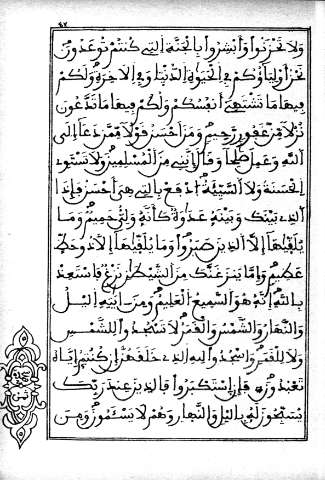 وَلَا تَحْزَنُوا وَأَبْشِرُوا بِالْجَنَّةِ الَّتِي كُنتُمْ تُوعَدُونَ
نَحْنُ أَوْلِيَاؤُكُمْ فِي الْحَيَوٰةِ الدُّنْيَا وَفِي الْآخِرَةِ وَلَكُمْ
فِيهَا مَا تَشْتَهِي أَنفُسُكُمْ وَلَكُمْ فِيهَا مَا تَدَّعُونَ
نُزُلًا مِّنْ غَفُورٍ رَّحِيمٍ وَمَنْ أَحْسَنُ قَوْلًا مِّمَّن دَعَا إِلَى
اللَّهِ وَعَمِلَ صَٰلِحًا وَقَالَ إِنَّنِي مِنَ الْمُسْلِمِينَ وَلَا تَسْتَوِي
الْحَسَنَةُ وَلَا السَّيِّئَةُ ادْفَعْ بِالَّتِي هِيَ أَحْسَنُ فَإِذَا
الَّذِي بَيْنَكَ وَبَيْنَهُ عَدَٰوَةٌ كَأَنَّهُ وَلِيٌّ حَمِيمٌ وَمَا
يُلَقَّيٰهَا إِلَّا الَّذِينَ صَبَرُوا وَمَا يُلَقَّيٰهَا إِلَّا ذُو حَظٍّ
عَظِيمٍ وَإِمَّا يَنزَغَنَّكَ مِنَ الشَّيْطَٰنِ نَزْغٌ فَاسْتَعِذْ
بِاللَّهِ إِنَّهُ هُوَ السَّمِيعُ الْعَلِيمُ وَمِنْ آيَٰتِهِ الَّيْلُ
وَالنَّهَارُ وَالشَّمْسُ وَالْقَمَرُ لَا تَسْجُدُوا لِلشَّمْسِ
وَلَا لِلْقَمَرِ وَاسْجُدُوا لِلَّهِ الَّذِي خَلَقَهُنَّ إِن كُنتُمْ إِيَّاهُ
تَعْبُدُونَ فَإِنِ اسْتَكْبَرُوا فَالَّذِينَ عِندَ رَبِّكَ
يُسَبِّحُونَ لَهُ بِالَّيْلِ وَالنَّهَارِ وَهُمْ لَا يَسْـَٔمُونَ وَمِنْ